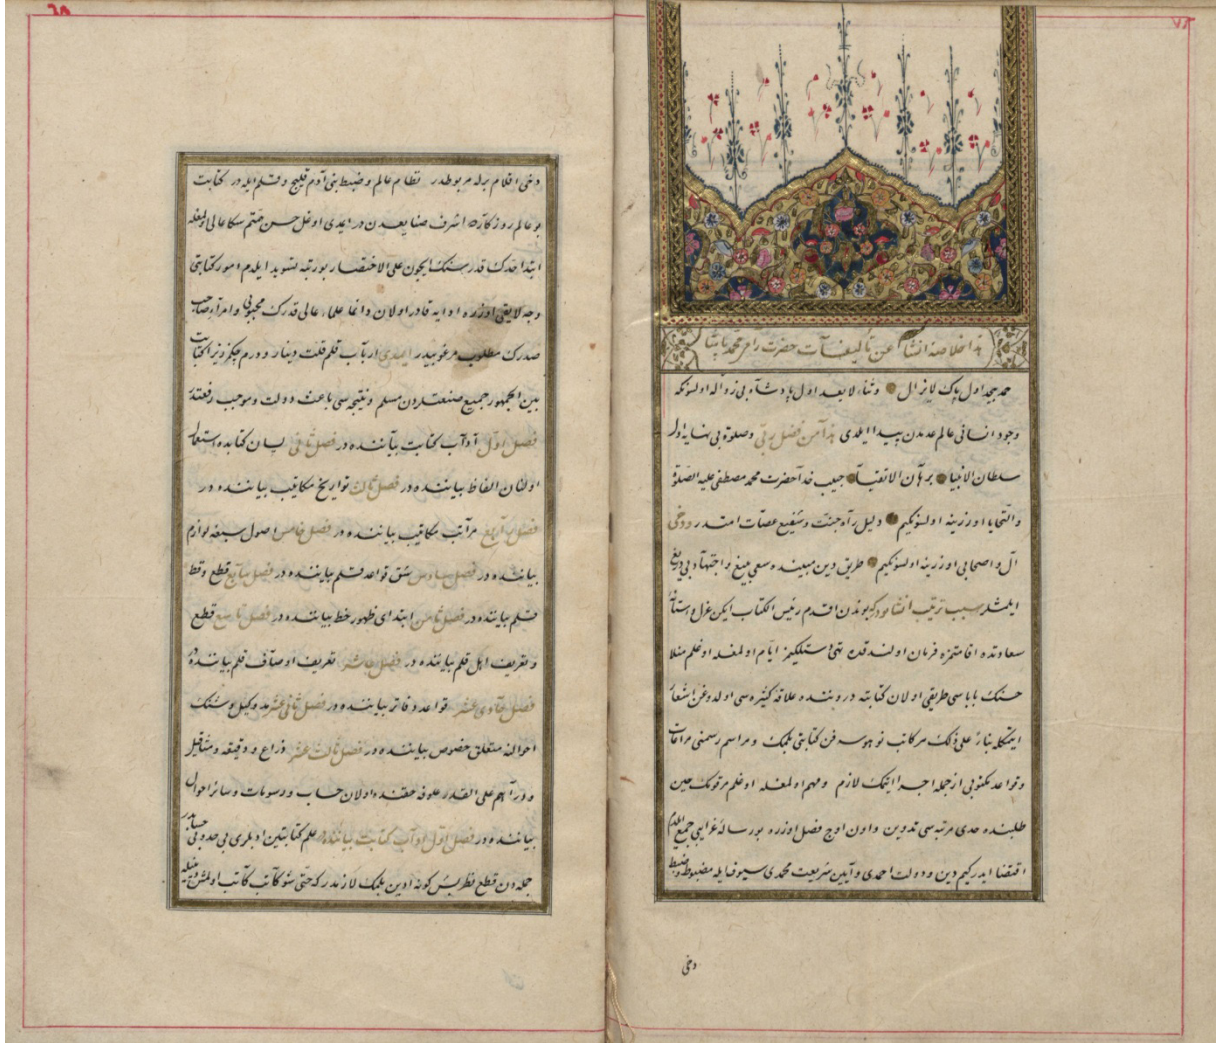 هذا خلاصة انشا عن تأليفات حضرت رامي محمد پاشا
حمد بيحد اول پاك لايزال وثناء لا يعد اول پادشاه بی زواله اولسونكه
وجود انسانی عالم عدمدن پیدا ایلدی هذا من فضل ربی وصلوة بی نهایه اول
سلطان الانبیا برهان الاتقیا حبیب خدا حضرت محمد مصطفی علیه الصلوة
والتحایا اوزرینه اولسونكیم دلیل راه جنت وشفیع عصات امتدر ودخی
آل واصحابی اوزرینه اولسونكیم طریق دین مبینده سعی بلیغ واجتهاد بی دریغ
ایلمشلر سبب ترتیب انشا بودركه بوندن اقدم رئیس الكتاب ایكن عزل و
سعادتده اقامتمزه فرمان اولندقده ایام اولمغله اوغلم منلا
حسنك باباسی طریقی اولان كتابته درونده علاقه كثیره سی اولدوغن اشعار
ایتمكله بناءً علی ذلك مركاتب نوهوسه فن كتابتی بلمك ومراسم رسمنی مراعات
وقواعد مكتوبی از جمله اجرا ایتمك لازم ومهم اولمغله اوغلم مرقومك حین
طلبنده حدی مرتبه سی تدوین واون اوچ فصل اوزره بو رساله غرایبی جمع
اقتضا ایدر كیم دین ودولت احمدی وآیین شریعت محمدی سیوف ایله مضبوط
دخی
دخی اقلام یله مربوطدر نظام عالم وضبط بنی آدم قلیج وقلم ایله در كتابت
بو عالم روزكارده اشرف صنایعدن در ایمدی اوغل حسن همتم سكا عالی اولمغله
ابتدا قدرك سنك ایچون علی الاختصار بو رتبه تسوید ایلدم امور كتابتی
وجه لایقی اوزره ادایه قادر اولان دائما علماء عالی قدرك محبوبی وامراء صاحب
صدرك مطلوب مرغوبیدر ایمدی ارباب قلم قلت دینار ودرم چكمز زیرا كتابت
بین الجمهور جمیع صنعتلردن مسلم ونتیجه سی باعث دولت وموجب رفعتدر
فصل اول آداب كتابت بیاننده در فصل ثانی لسان كتابده استعمال
اولنان الفاظ بیاننده در فصل ثالث تواریخ مكاتیب بیاننده در
فصل رابع مراتب مكاتیب بیاننده در فصل خامس اصول سبعه لوازم
بیاننده در فصل سادس مشق قواعد قلم بیاننده در فصل سابع قطع وقط
قلم بیاننده در فصل ثامن ابتدای ظهور خط بیاننده در فصل تاسع قطع
وتعریف اهل قلم بیاننده در فصل عاشر تعریف اوصاف قلم بیاننده در
فصل حادی عشر قواعد دفاتر بیاننده در فصل ثانی عشر مد وكیل وسنك
احوالنه متعلق خصوص بیاننده در فصل ثالث عشر ذراع ودقیقه ومثاقیل
ودراهم علی القدر علوفه حقنده اولان حساب ورسومات وسائر احوال
بیاننده در فصل اول آداب كتابت بیاننده علم كتابتین ادبلری بی حد وبی حسابدر
جمله دن قطع نظر بش كونه ادبن بلمك لازمدر كه حتی شو كاتب كاتب اولمش